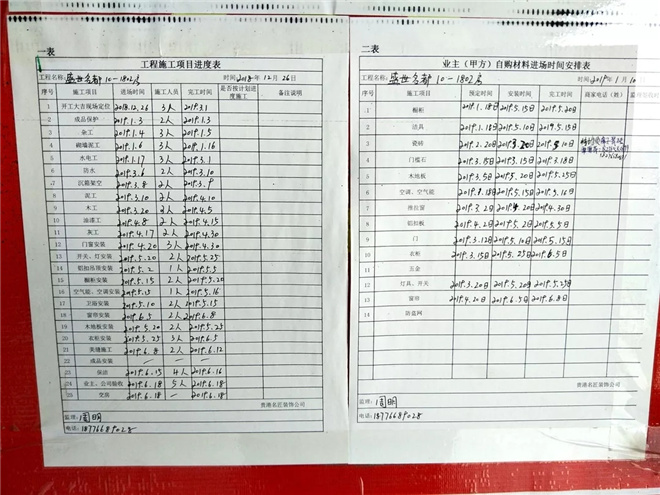 一表
工程施工项目进度表
工程名称: 盛世名都10-1802房 时间:2018年12月26日
序号 施工项目 进场时间 施工人员 完工时间 是否按计划进度施工 备注说明
1 开工大吉现场定位 2018.12.26 3人 2019.3.1
2 成品保护 2019.1.3 2人 2019.1.3
3 杂工 2019.1.4 3人 2019.1.5
4 砌墙泥工 2019.1.6 3人 2019.1.16
5 水电工 2019.1.17 3人 2019.3.1
6 防水 2019.3.6 2人 2019.3.10
7 沉箱架空 2019.3.8 2人 2019.3.9
8 泥工 2019.3.10 2人 2019.4.10
9 木工 2019.3.20 2人 2019.4.5
10 油漆工 2019.4.8 2人 2019.4.15
11 灰工 2019.4.17 2人 2019.4.30
12 门窗安装 2019.4.20 3人 2019.4.30
13 开关、灯安装 2019.5.20 2人 2019.5.25
14 铝扣吊顶安装 2019.5.2 1人 2019.5.5
15 橱柜安装 2019.5.15 2人 2019.5.20
16 空气能、空调安装 2019.5.15 1人 2019.5.16
17 卫浴安装 2019.5.10 2人 2019.5.15
18 窗帘安装 2019.6.5 2人 2019.6.8
19 木地板安装 2019.5.20 2人 2019.5.25
20 衣柜安装 2019.5.25 3人 2019.6.5
21 美缝施工 2019.6.8 2人 2019.6.12
22 成品安装 — — —
23 保洁 2019.6.15 4人 2019.6.16
24 业主、公司验收 2019.6.18 5人 2019.6.18
25 交房 2019.6.18 — 2019.6.18
贵港名匠装饰公司
监理: 周明
电话: 18776689028
二表
业主(甲方)自购材料进场时间安排表
工程名称: 盛世名都10-1802房 时间:2019年1月10
序号 施工项目 预定时间 安装时间 完工时间 商家电话(姓名)
1 橱柜 2019.1.18日 2019.5.15日 2019.5.20日
2 洁具 2019.1.18日 2019.5.10日 2019.5.15日
3 瓷砖 2019.2.20日 2019.3.20日 2019.5.10日
4 门槛石 2019.3.15日 2019.3.15日 2019.3.18日
5 木地板 2019.3.5日 2019.5.20日 2019.5.25日
6 空调、空气能 2019.1.18日 2019.5.15日 2019.5.16日
7 推拉窗 2019.3.2日 2019.4.20日 2019.4.30日
8 铝扣板 2019.4.2日 2019.5.2日 2019.5.5日
9 门 2019.3.12日 2019.5.10日 2019.5.15日
10 衣柜 2019.3.15日 2019.5.25日 2019.6.5日
11 五金
12 灯具、开关 2019.3.20日 2019.5.20日 2019.5.25日
13 窗帘 2019.4.20日 2019.6.5日 2019.6.8日
14 防盗网
贵港名匠装饰公司
监理: 周明
电话: 18776689028